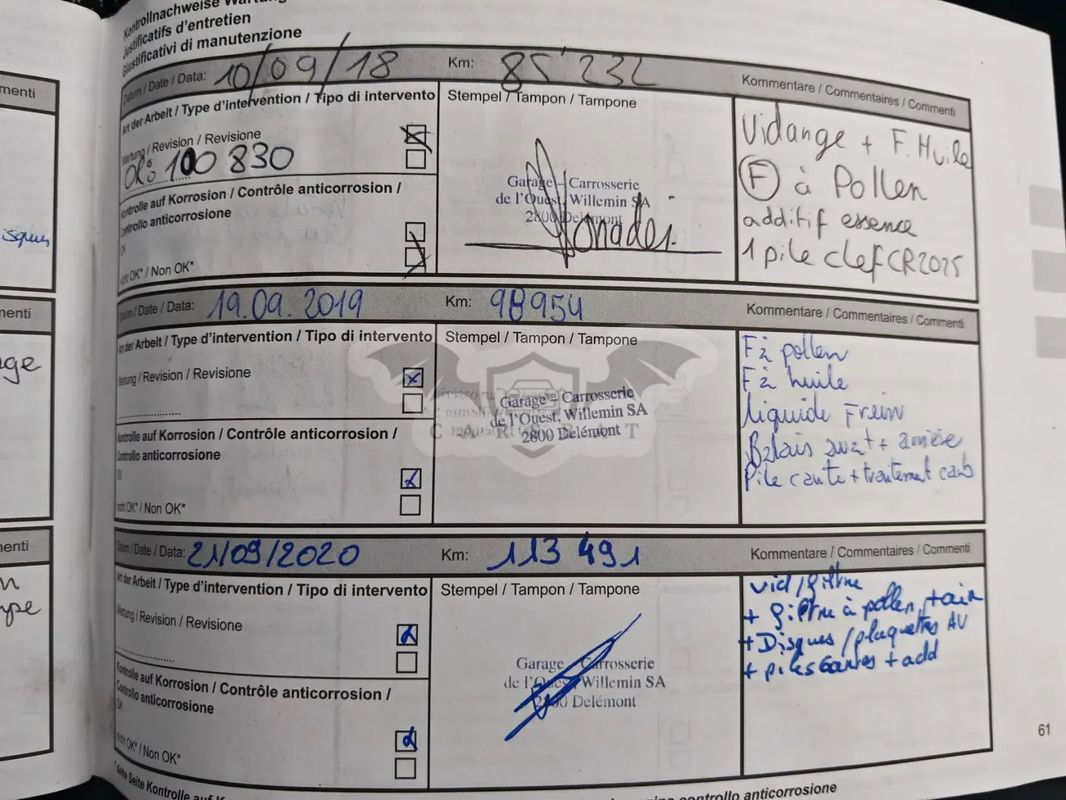 Kontrollnachweise Wartung
Justificatifs d'entretien
Giustificativi di manutenzione
Datum / Date / Data: 10/09/18 Km: 85'232 Kommentare / Commentaires / Commenti
Art der Arbeit / Type d'intervention / Tipo di intervento
Stempel / Tampon / Tampone
Wartung / Revision / Revisione
100 830
Kontrolle auf Korrosion / Contrôle anticorrosion /
Controllo anticorrosione
OK
Nicht OK* / Non OK*
Garage - Carrosserie
de l'Ouest, Willemin SA
2800 Delémont
Vidange + F. Huile
F à Pollen
additif essence
1 pile clef CR2025
Datum / Date / Data: 19.09.2019 Km: 98954 Kommentare / Commentaires / Commenti
Art der Arbeit / Type d'intervention / Tipo di intervento
Stempel / Tampon / Tampone
Wartung / Revision / Revisione
Kontrolle auf Korrosion / Contrôle anticorrosion /
Controllo anticorrosione
OK
Nicht OK* / Non OK*
Garage - Carrosserie
de l'Ouest, Willemin SA
2800 Delémont
F à pollen
F à huile
liquide Frein
Balais avant + arrière
Pile carte + traitement carb
Datum / Date / Data: 21/09/2020 Km: 113 491 Kommentare / Commentaires / Commenti
Art der Arbeit / Type d'intervention / Tipo di intervento
Stempel / Tampon / Tampone
Wartung / Revision / Revisione
Kontrolle auf Korrosion / Contrôle anticorrosion /
Controllo anticorrosione
OK
Nicht OK* / Non OK*
Garage - Carrosserie
de l'Ouest, Willemin SA
2800 Delémont
vid/filtre
+ filtre à pollen + air
+ Disques / plaquettes AV
+ piles cartes + add
61